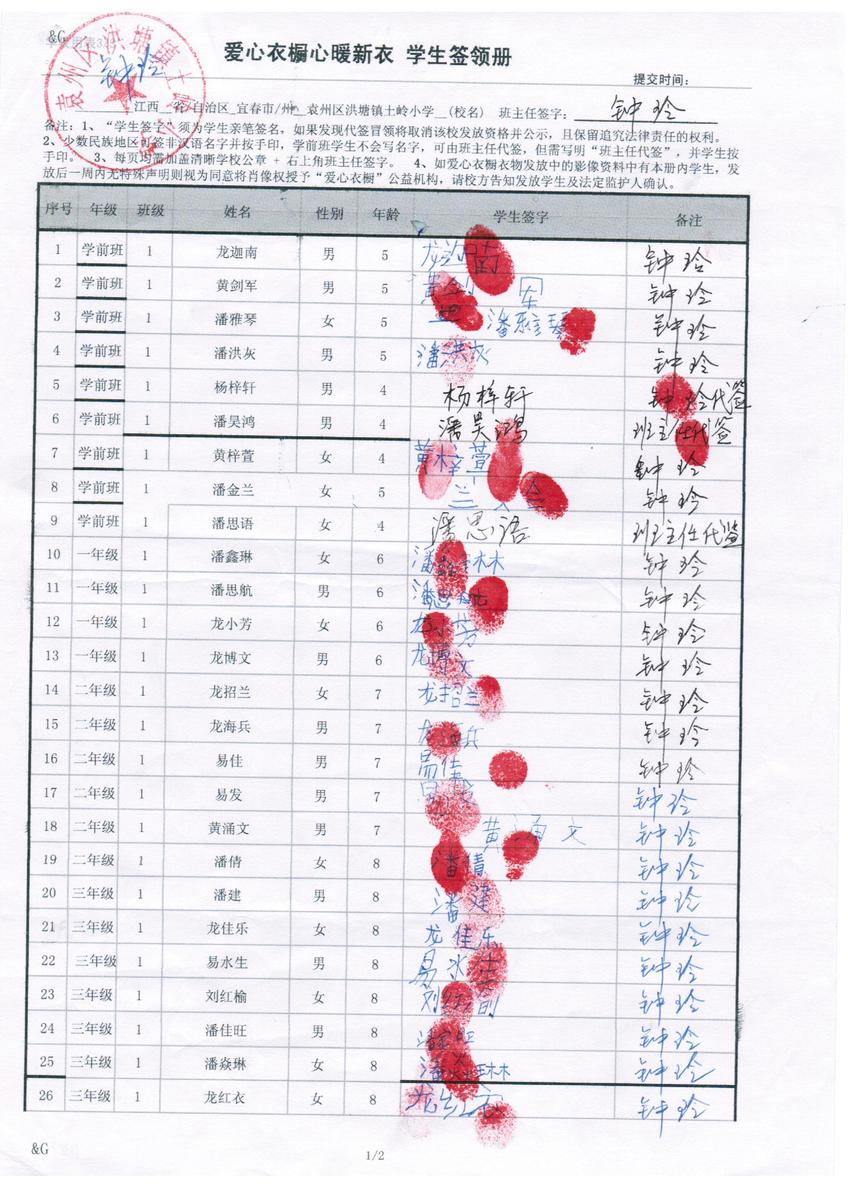 &G
爱心衣橱心暖新衣 学生签领册
袁州区洪塘镇土岭
钟玲
提交时间：
江西__省/自治区_宜春市/州__袁州区洪塘镇土岭小学__(校名) 班主任签字：钟玲
备注：1、“学生签字”须为学生亲笔签名，如果发现代签冒领将取消该校发放资格并公示，且保留追究法律责任的权利。
2、少数民族地区可签非汉语名字并按手印，学前班学生不会写名字，可由班主任代签，但需写明“班主任代签”，并学生按
手印。 3、每页均需加盖清晰学校公章 + 右上角班主任签字。 4、如爱心衣橱衣物发放中的影像资料中有本册内学生，发
放后一周内无特殊声明则视为同意将肖像权授予“爱心衣橱”公益机构，请校方告知发放学生及法定监护人确认。
序号 年级 班级 姓名 性别 年龄 学生签字 备注
1 学前班 1 龙迦南 男 5 龙迦南 钟玲
2 学前班 1 黄剑军 男 5 黄剑军 钟玲
3 学前班 1 潘雅琴 女 5 潘雅琴 钟玲
4 学前班 1 潘洪灰 男 5 潘洪灰 钟玲
5 学前班 1 杨梓轩 男 4 杨梓轩 钟玲代签
6 学前班 1 潘昊鸿 男 4 潘昊鸿 班主任代签
7 学前班 1 黄梓萱 女 4 黄梓萱 钟玲
8 学前班 1 潘金兰 女 5 兰 钟玲
9 学前班 1 潘思语 女 4 潘思语 班主任代签
10 一年级 1 潘鑫琳 女 6 潘鑫琳 钟玲
11 一年级 1 潘思航 男 6 潘思航 钟玲
12 一年级 1 龙小芳 女 6 龙小芳 钟玲
13 一年级 1 龙博文 男 6 龙博文 钟玲
14 二年级 1 龙招兰 女 7 龙招兰 钟玲
15 二年级 1 龙海兵 男 7 龙海兵 钟玲
16 二年级 1 易佳 男 7 易佳 钟玲
17 二年级 1 易发 男 7 易发 钟玲
18 二年级 1 黄涌文 男 7 黄涌文 钟玲
19 二年级 1 潘倩 女 8 潘倩 钟玲
20 三年级 1 潘建 男 8 潘建 钟玲
21 三年级 1 龙佳乐 女 8 龙佳乐 钟玲
22 三年级 1 易水生 男 8 易水生 钟玲
23 三年级 1 刘红榆 女 8 刘红 钟玲
24 三年级 1 潘佳旺 男 8 潘佳旺 钟玲
25 三年级 1 潘焱琳 女 8 潘焱琳 钟玲
26 三年级 1 龙红衣 女 8 龙红衣 钟玲
&G
1/2